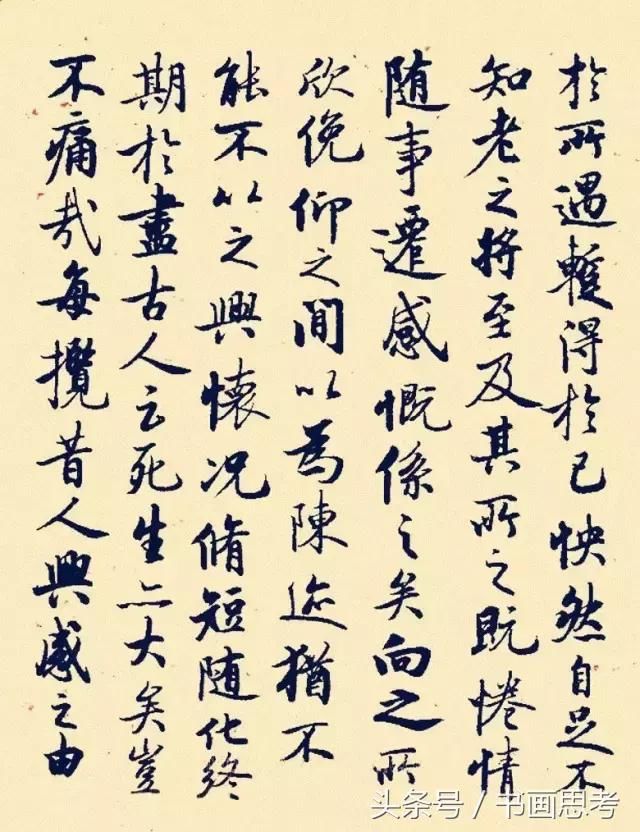 於所遇暫得於己怏然自足不
知老之將至及其所之既惓情
随事遷感慨係之矣向之所
欣俛仰之間以為陳迹猶不
能不以之興懷况脩短随化終
期於盡古人云死生亦大矣豈
不痛哉每攬昔人興感之由
头条号/书画思考